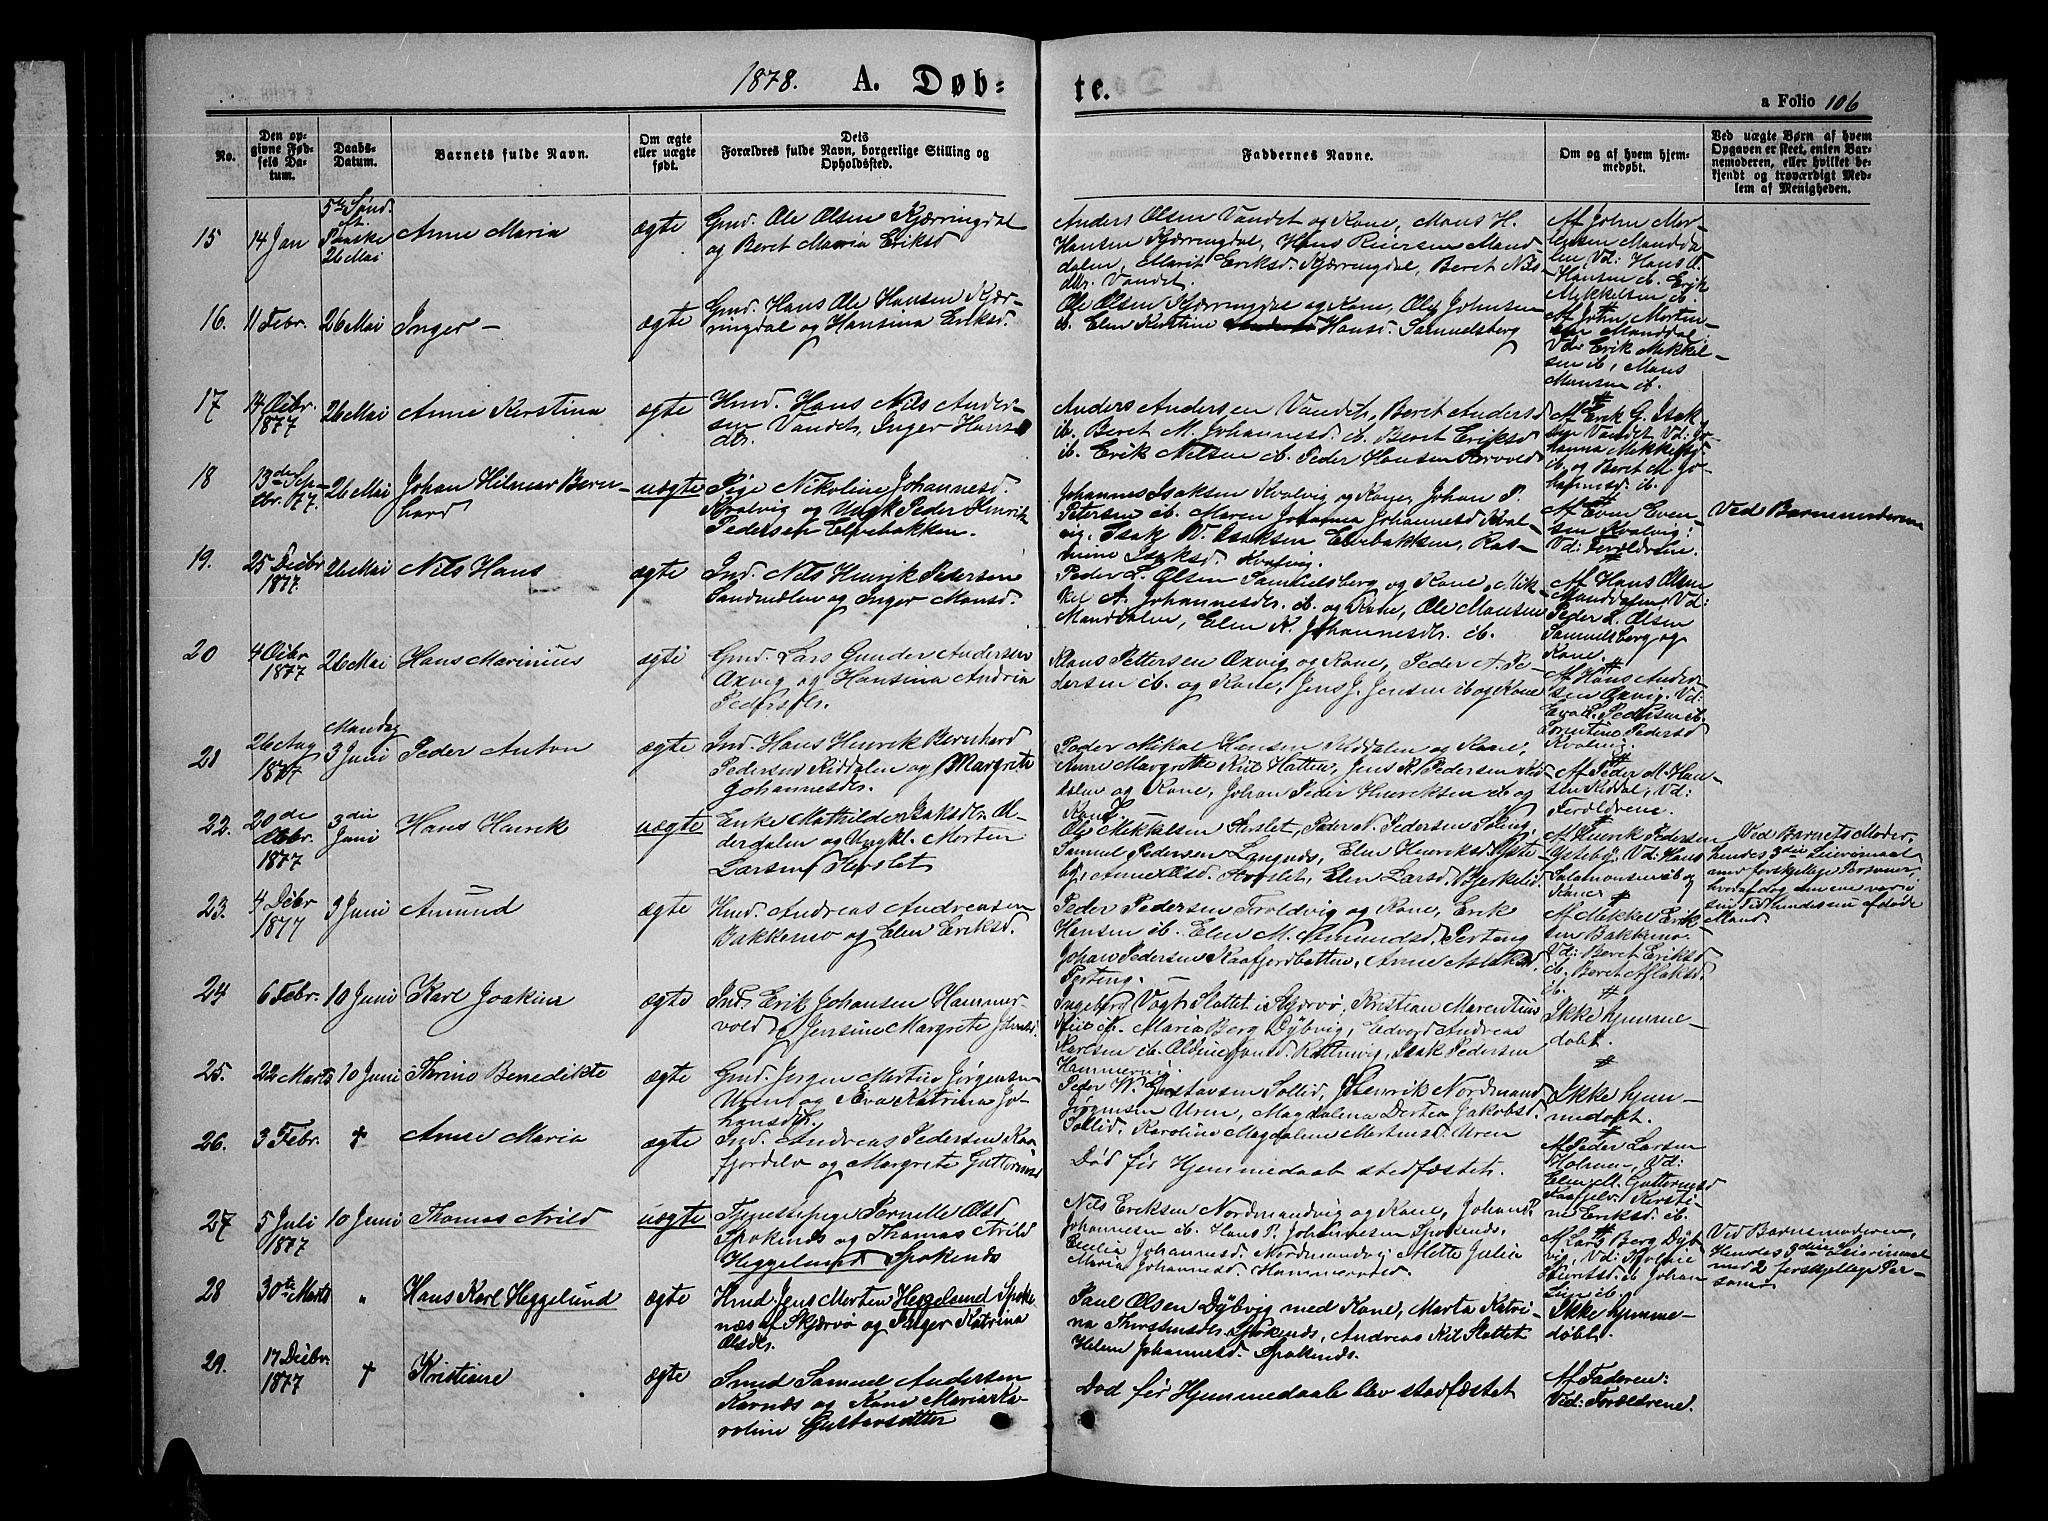 1878. A. Døb=
te.
a Folio 106
No.
Den op-
givne Fød-
sels Da-
tum.
Daabs-
Datum.
Barnets fulde Navn.
Om ægte
eller uægte
født.
Dets
Forældres fulde Navn, borgerlige Stilling og
Opholdssted.
Faddernes Navne.
Om og af hvem hjem-
medøbt.
Ved uægte Børn af hvem
Opgaven er skeet, enten Bar-
nemoderen, eller hvilket be-
kjendt og troværdigt Med-
lem af Menigheden.
15
14 Jan
5te Sønd.
eft.
Paaske
26 Mai
Anne Maria
ægte
Gmd. Ole Olsen Kjærringdal
og Beret Maria Eriksd
Anders Olsen Vandet og Kone, Mons H.
Hansen Kjærringdal, Hans Reiersen Mand-
dalen, Marit Eriksd. Kjærringdal, Beret Nils-
dtr. Vandet.
Af John Mor-
tensen Mandda-
len, Vd: Hans O.
Hansen ib. Erik
Mikkelsen ib.
16.
11 Febr.
26 Mai
Inger –
ægte
Gmd. Hans Ole Hansen Kjær-
ringdal og Hansina Eriksd.
Ole Olsen Kjærringdal og Kone, Ole Johnsen
ib. Elen Kirstine Hansd. Samuelsberg
Af John Morten-
sen Manddal.
Vd: Erik Mikkel-
sen ib, Mons
Monsen ib.
17
14 Octbr.
1877
26 Mai
Anne Kirstina
ægte
Hmd. Hans Nils Ander-
sen Vandet, Inger Hans
dtr.
Anders Andersen Vandet, Beret Andersd
ib. Beret M. Johannesd. ib. Beret Eriksd
ib. Erik Nilsen ib. Peder Hansen
Af Erik G. Isak-
sen Vandet, Vd: Jo-
hanna Mikkelsd
ib. og Beret M. Jo-
hannesd. ib.
18
13de Sep-
tbr. 77.
26 Mai
Johan Hilmar Bern-
hard
uægte
Pige Nikoline Johannesd.
Kvalvig og Ungk Peder Henrik
Pedersen Elvebakken.
Johannes Isaksen Kvalvig og Kone, Johan P.
Petersen ib. Maren Johanna Johannesd Kval-
vig. Isak W. Isaksen Elvebakken, Ras-
mine Isaksd. Kvalvig.
Af Even Even-
sen Kvalvig:
Vd: Forældrene.
Ved Barnemoderen
19.
25 Decbr
1877.
26 Mai
Nils Hans
ægte
Ind. Nils Henrik Petersen
Sandmælen og Inger Monsd.
Peder L. Olsen Samuelsberg og Kone, Mik-
kel A. Johannesdr. ib. og Kone, Ole Monsen
Manddalen, Elen K. Johannesdtr. ib.
Af Hans Olsen
Manddalen, Vd:
Peder L. Olsen
Samuelsberg og
Kone.
20
4 Octbr
1877
26 Mai
Hans Marinius
ægte
Gmd. Lars Gunder Andersen
Oxvig og Hansina Andria
Pedersdtr.
Klaus Pettersen Oxvig og Kone, Peder A. Pe-
dersen ib. og Kone, Jens J. Jensen ib og Kone
Af Hans Ander-
sen Oxvig. Vd:
Evald Pedersen ib.
Lorentine Pedersd
Kvalvig.
21
26 Aug
1877
Mandag
3 Juni
Peder Anton
ægte
Ind. Hans Henrik Bernhard
Pedersen Kiddalen og Margrete
Johannesdr.
Peder Mikal Hansen Kiddalen og Kone,
Anne Margrethe Kiil Hatten, Jens K. Pedersen Kid-
dalen og Kone, Johan Peder Henriksen ib og
Kone
Af Peder M. Han-
sen Kiddal, Vd:
Forældrene.
22.
20de
Octbr.
1877
3die
Juni
Hans Henrik
uægte
Enke Mathilde Isaksdtr. Ol-
derdalen og Ungkl. Morten
Larsen Horslet
Ole Mikkelsen Horslet, Peder N. Pedersen
Samuel Pedersen Langnæs, Elen Henriksd. Yste-
by, Anne Olsd. Horslet, Elen Larsd. Bjerkelid.
Af Henrik Pedersen
Ysteby, Vd: Hans
Salamonsen ib og
Kone
Ved Barnets Moder,
hendes 3die Leiermaal
med forskjellige Personer,
hvoraf dog den ene var i
sin Tid hendes nu afdøde
Mand
23.
4 Decbr
1877
3 Juni
Amund
ægte
Hmd. Andreas Andreasen
Bakkemo og Elen Eriksd.
Peder Pedersen Troldvig og Kone, Erik
Hansen ib. Elen M. Amundsd. Perteng
Johan Pedersen Kaafjordbotten, Anne Aslaksd
Perteng.
Af Mikkel Erik-
sen Bakkemo.
Vd: Beret Eriksd
ib. Beret Aslaksd
ib.
24
6 Febr.
10 Juni
Karl Joakim
ægte
Ind. Erik Johansen Hammer-
vold og Jensine Margrete Johnsd
Ingeborg Vogt Slottet i Skjervø, Kristian Marentius
Kiil ib. Maria Berg Dybvig, Edvard Andreas
Karlsen ib. Oldine Jonsd. Rotsundvig, Isak Pedersen
Hammervig.
Ikke hjemme-
døbt.
25.
22 Marts
10 Juni
Trine Benedikte
ægte
Gmd. Jørgen Martin Jørgensen
Uren og Eva Katrina Jo-
hansdtr.
Peder W. Gustavsen Sollid, Henrik Nordmand
Jørgensen Uren, Magdalena Dortea Jakobsd.
Sollid. Karoline Magdalene Martinsd. Uren
Ikke hjem-
medøbt.
26.
3 Febr.
†
Anne Maria
ægte
Ind. Andreas Pedersen Kaa-
fjordelv og Margrete Guttormsd
Død før Hjemmedaab stedfæstet.
Af Peder Larsen
Holmen, Vd:
Elen M. Guttormsd
Kaafjelv. Kirsti-
ne Eriksd. ib.
27
5 Juli
1877
10 Juni
Thomas Arild
uægte
Tjenestepige Pernelle Olsd
Spokenæs og Thomas Arild
Heggelund Spokenæs
Nils Eriksen Nordmandvig og Kone, Johan P.
Johannesen ib. Hans P. Johannesen Spokenæs,
Emilia Johannesd. Nordmandvig, Mette Julia
Maria Johannesd. Hammervold.
Af Lars Berg Dyb-
vig, Vd: Kolbine
ib. Johan
ib.
Ved Barnemoderen,
Hendes 3die Leiermaal
med 2 forskjellige Per-
soner
28
30te Marts
"
Hans Karl Heggelund
ægte
Hmd. Jens Morten Heggelund Spoke-
næs af Skjervø og Inger Katrina
Olsdtr.
Paul Olsen Dybvig med Kone, Marta Katri-
na Thorstensdtr. Spokenæs, Andreas Kil Slottet
Helene Johannesd. Spokenæs.
Ikke hjemme-
døbt.
29.
17 Decbr.
1877
†
Kristiane
ægte
Smed Samuel Andersen
Karnæs og Kone Maria Ka-
roline Guldbrandsdatter
Død før Hjemmedaab blev stedfæstet
Af Faderen:
Ved: Forældrene.